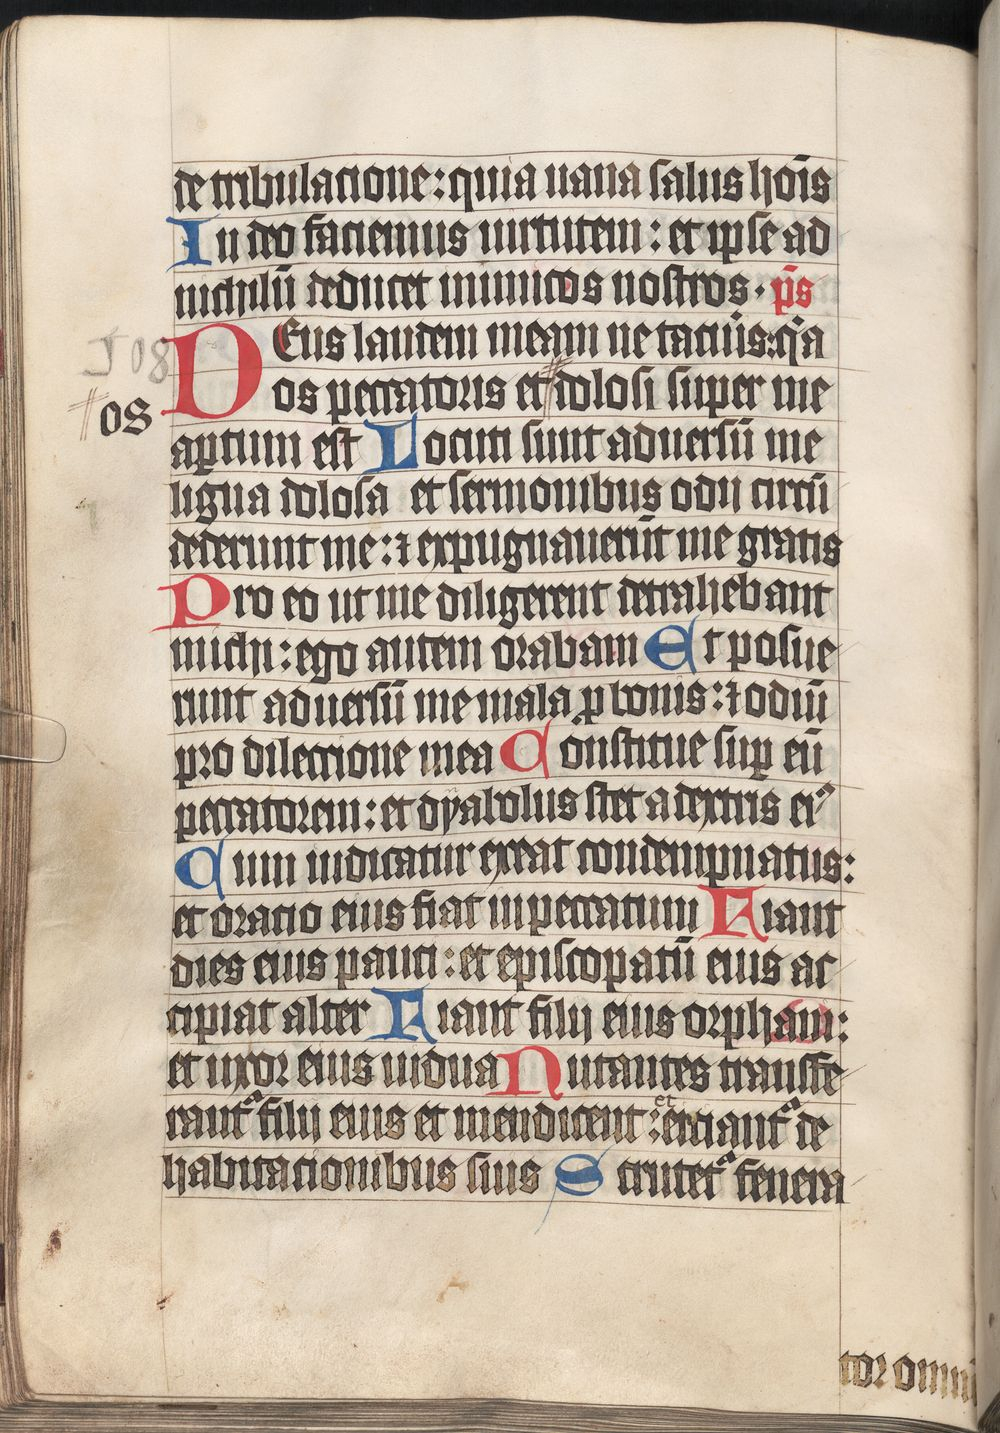 de tribulacione: quia uana salus hoīs
In deo faciemus uirtutem: et ipse ad
nichilū deducet inimicos nostros. ps̄
DEus laudem meam ne tacuīs: qa
108
os peccatoris et dolosi super me
os
aꝑtum est Locuti sunt aduersū me
ligua dolosa et sermonibus odij circū
dederunt me: ⁊ expugnauerūt me gratis
Pro eo ut me diligerent detrahebant
michi: ego autem orabam Et posue
runt aduersū me mala ꝓ bonis: ⁊ odiū
pro dileccione mea Constitue suꝑ eū
peccatorem: et dyabolus stet a dextris eiꝰ
Cum iudicatur exeat condempnatus:
et oratio eius fiat in peccatum Fiant
dies eius pauci: et episcopatū eius ac
cipiat alter Fiant filij eius orphani:
et uxor eius uidua Nutantes transfe
rantᷓ filij eius et mendicent: et eiciantᷓ de
habitacionibus suis Scrutetᷓ fenera
tor omnē